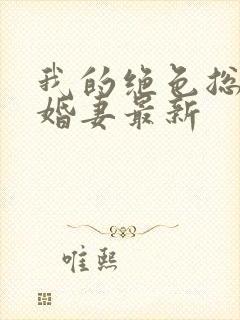 我的绝色总
婚妻最新
唯熙